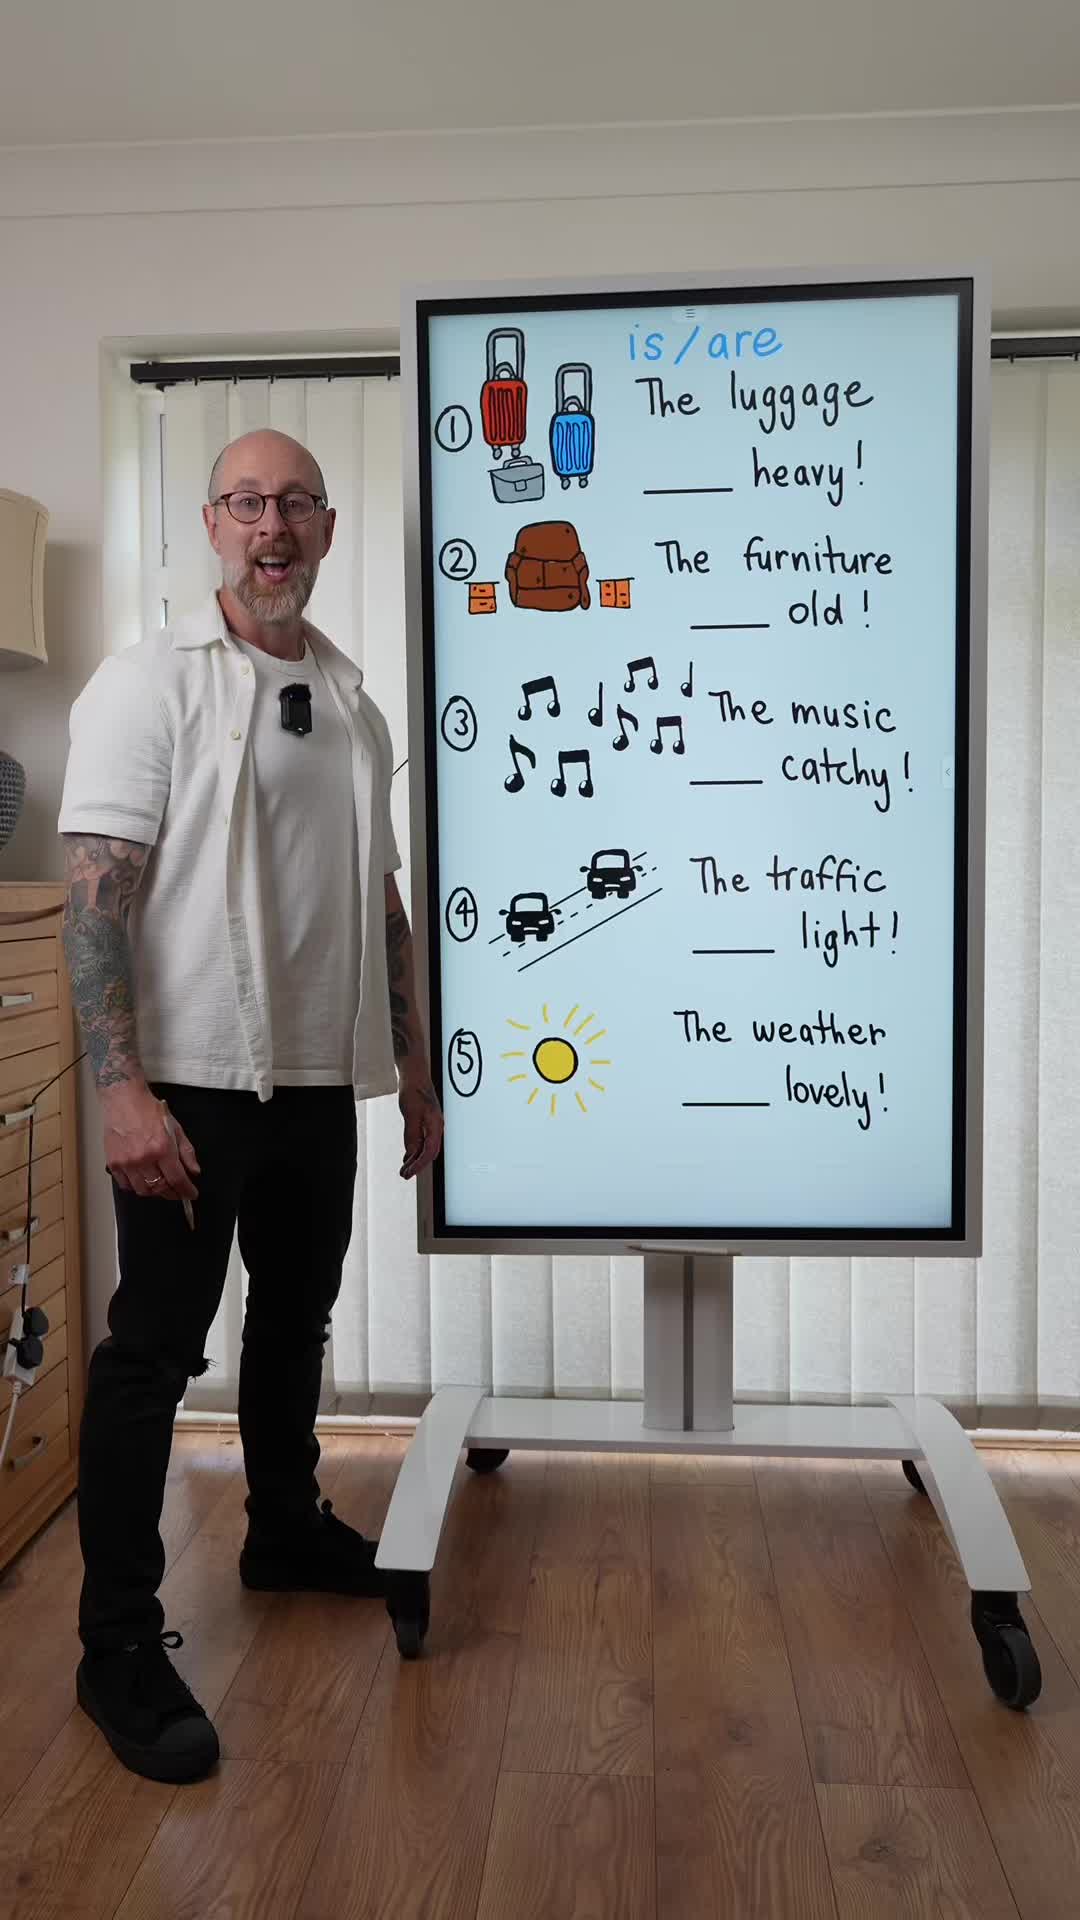 is/are
① The luggage
____ heavy!
② The furniture
____ old!
③ The music
____ catchy!
④ The traffic
____ light!
⑤ The weather
____ lovely!